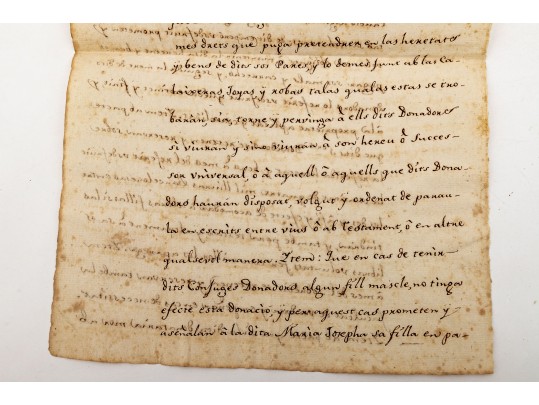 mes drets que puga pretendrer en las heretats
ÿ bens de dits sos Pares, y lo demes junt ab las ca-
laixeras, Joyas, ÿ robas talas qualas estas se tro-
baran, sia, torne y pervinga à ells dits Donadors
si viuran y sino viuran, à son hereu ò succes-
sor vniversal, ò à aquell ò aquells que dits Dona-
dors hauran disposat, volgut y ordenat de parau-
la en escrits entre vius ò ab Testament, ò en altre
qualsevol manera. Item: Que en cas de tenir
dits Conjuges Donadors algun fill mascle, no tinga
efecte esta donació, ÿ per aquest cas prometen y
asenalan à la dita Maria Josepha sa filla en pa-